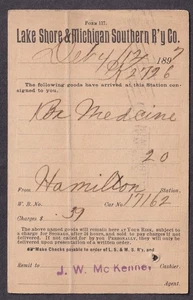 FORM 127.
Lake Shore & Michigan Southern R'y Co.
189
The following goods have arrived at this Station consigned to you.
Box Medcine
20
From Hamilton Station.
W. B. No. Car No. 17162
Charges $ .39
The above named goods will remain here AT YOUR RISK, subject to a charge for STORAGE after 24 hours, and sold to pay charges if not delivered. If not called for by you PERSONALLY, they will be delivered upon presentation of a written order.
Make Checks payable to order of L. S. & M. S. R'y, and
Remit to Cashier.
J. W. McKenney
Agent.